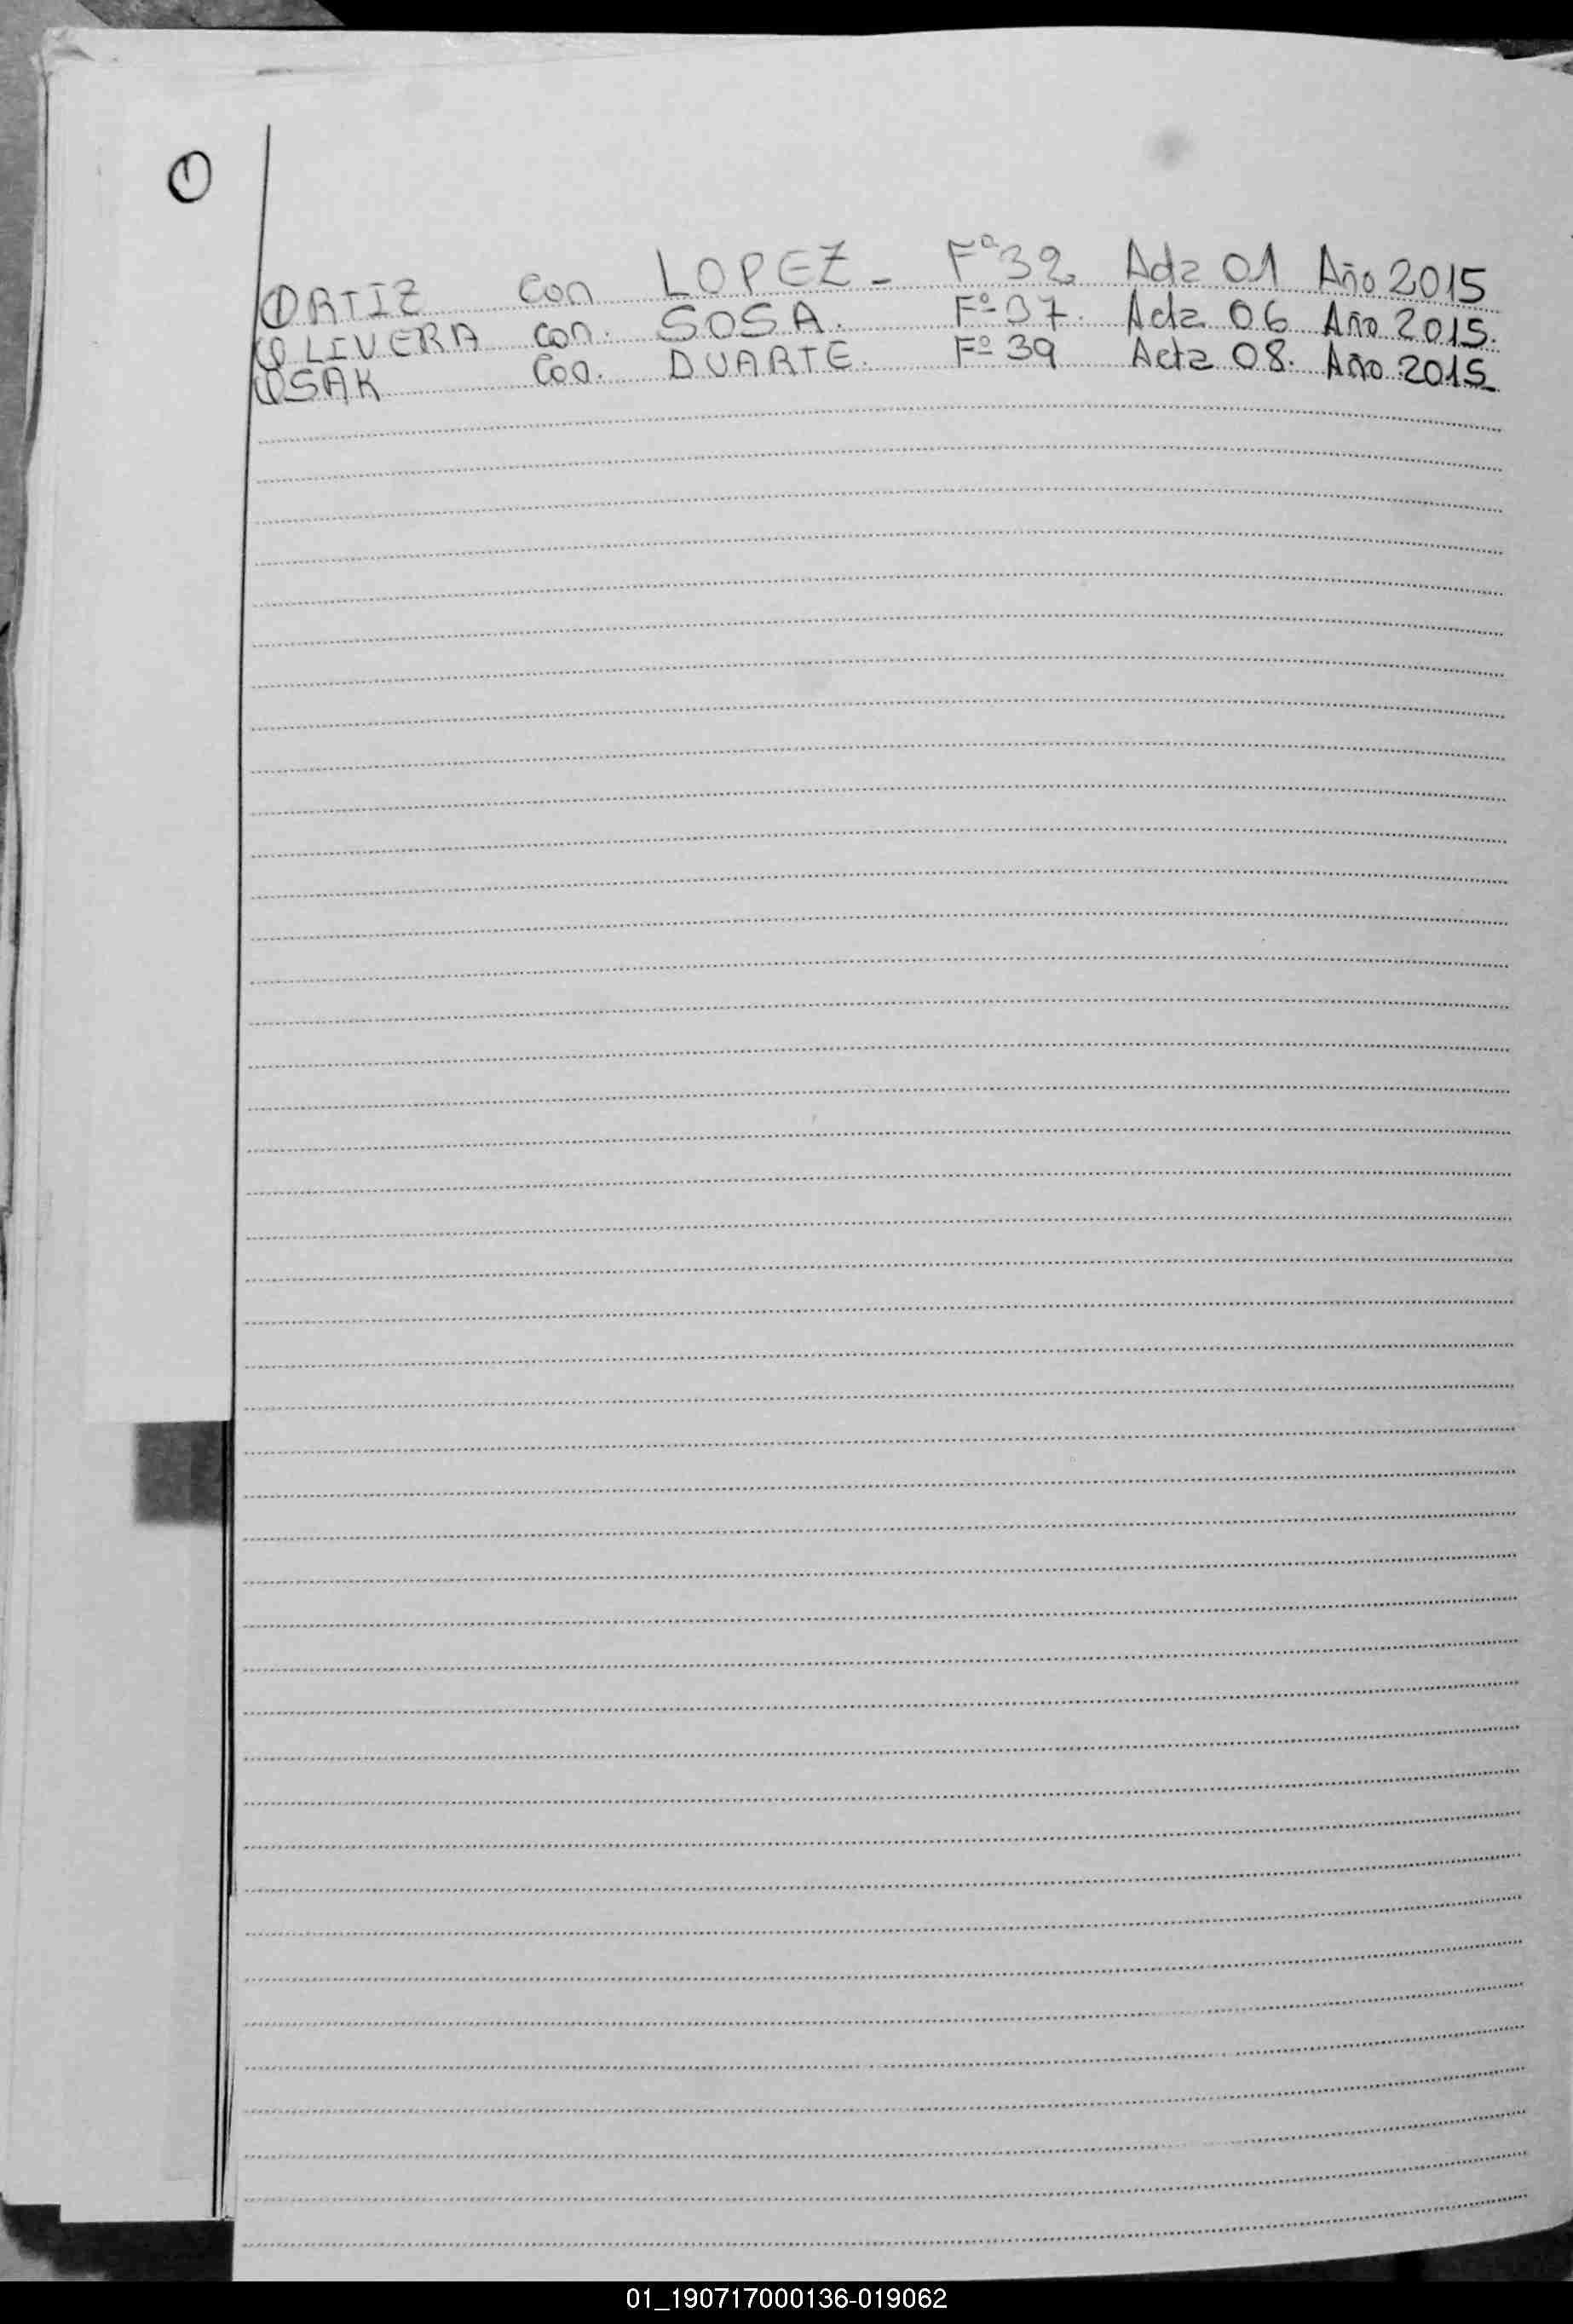 O
ORTIZ con LOPEZ - Fº 32. Acta 01 Año 2015
OLIVERA con. SOSA. Fº 37. Acta 06 Año 2015.
OSAK con. DUARTE. Fº 39 Acta 08. Año 2015_
01_190717000136-019062